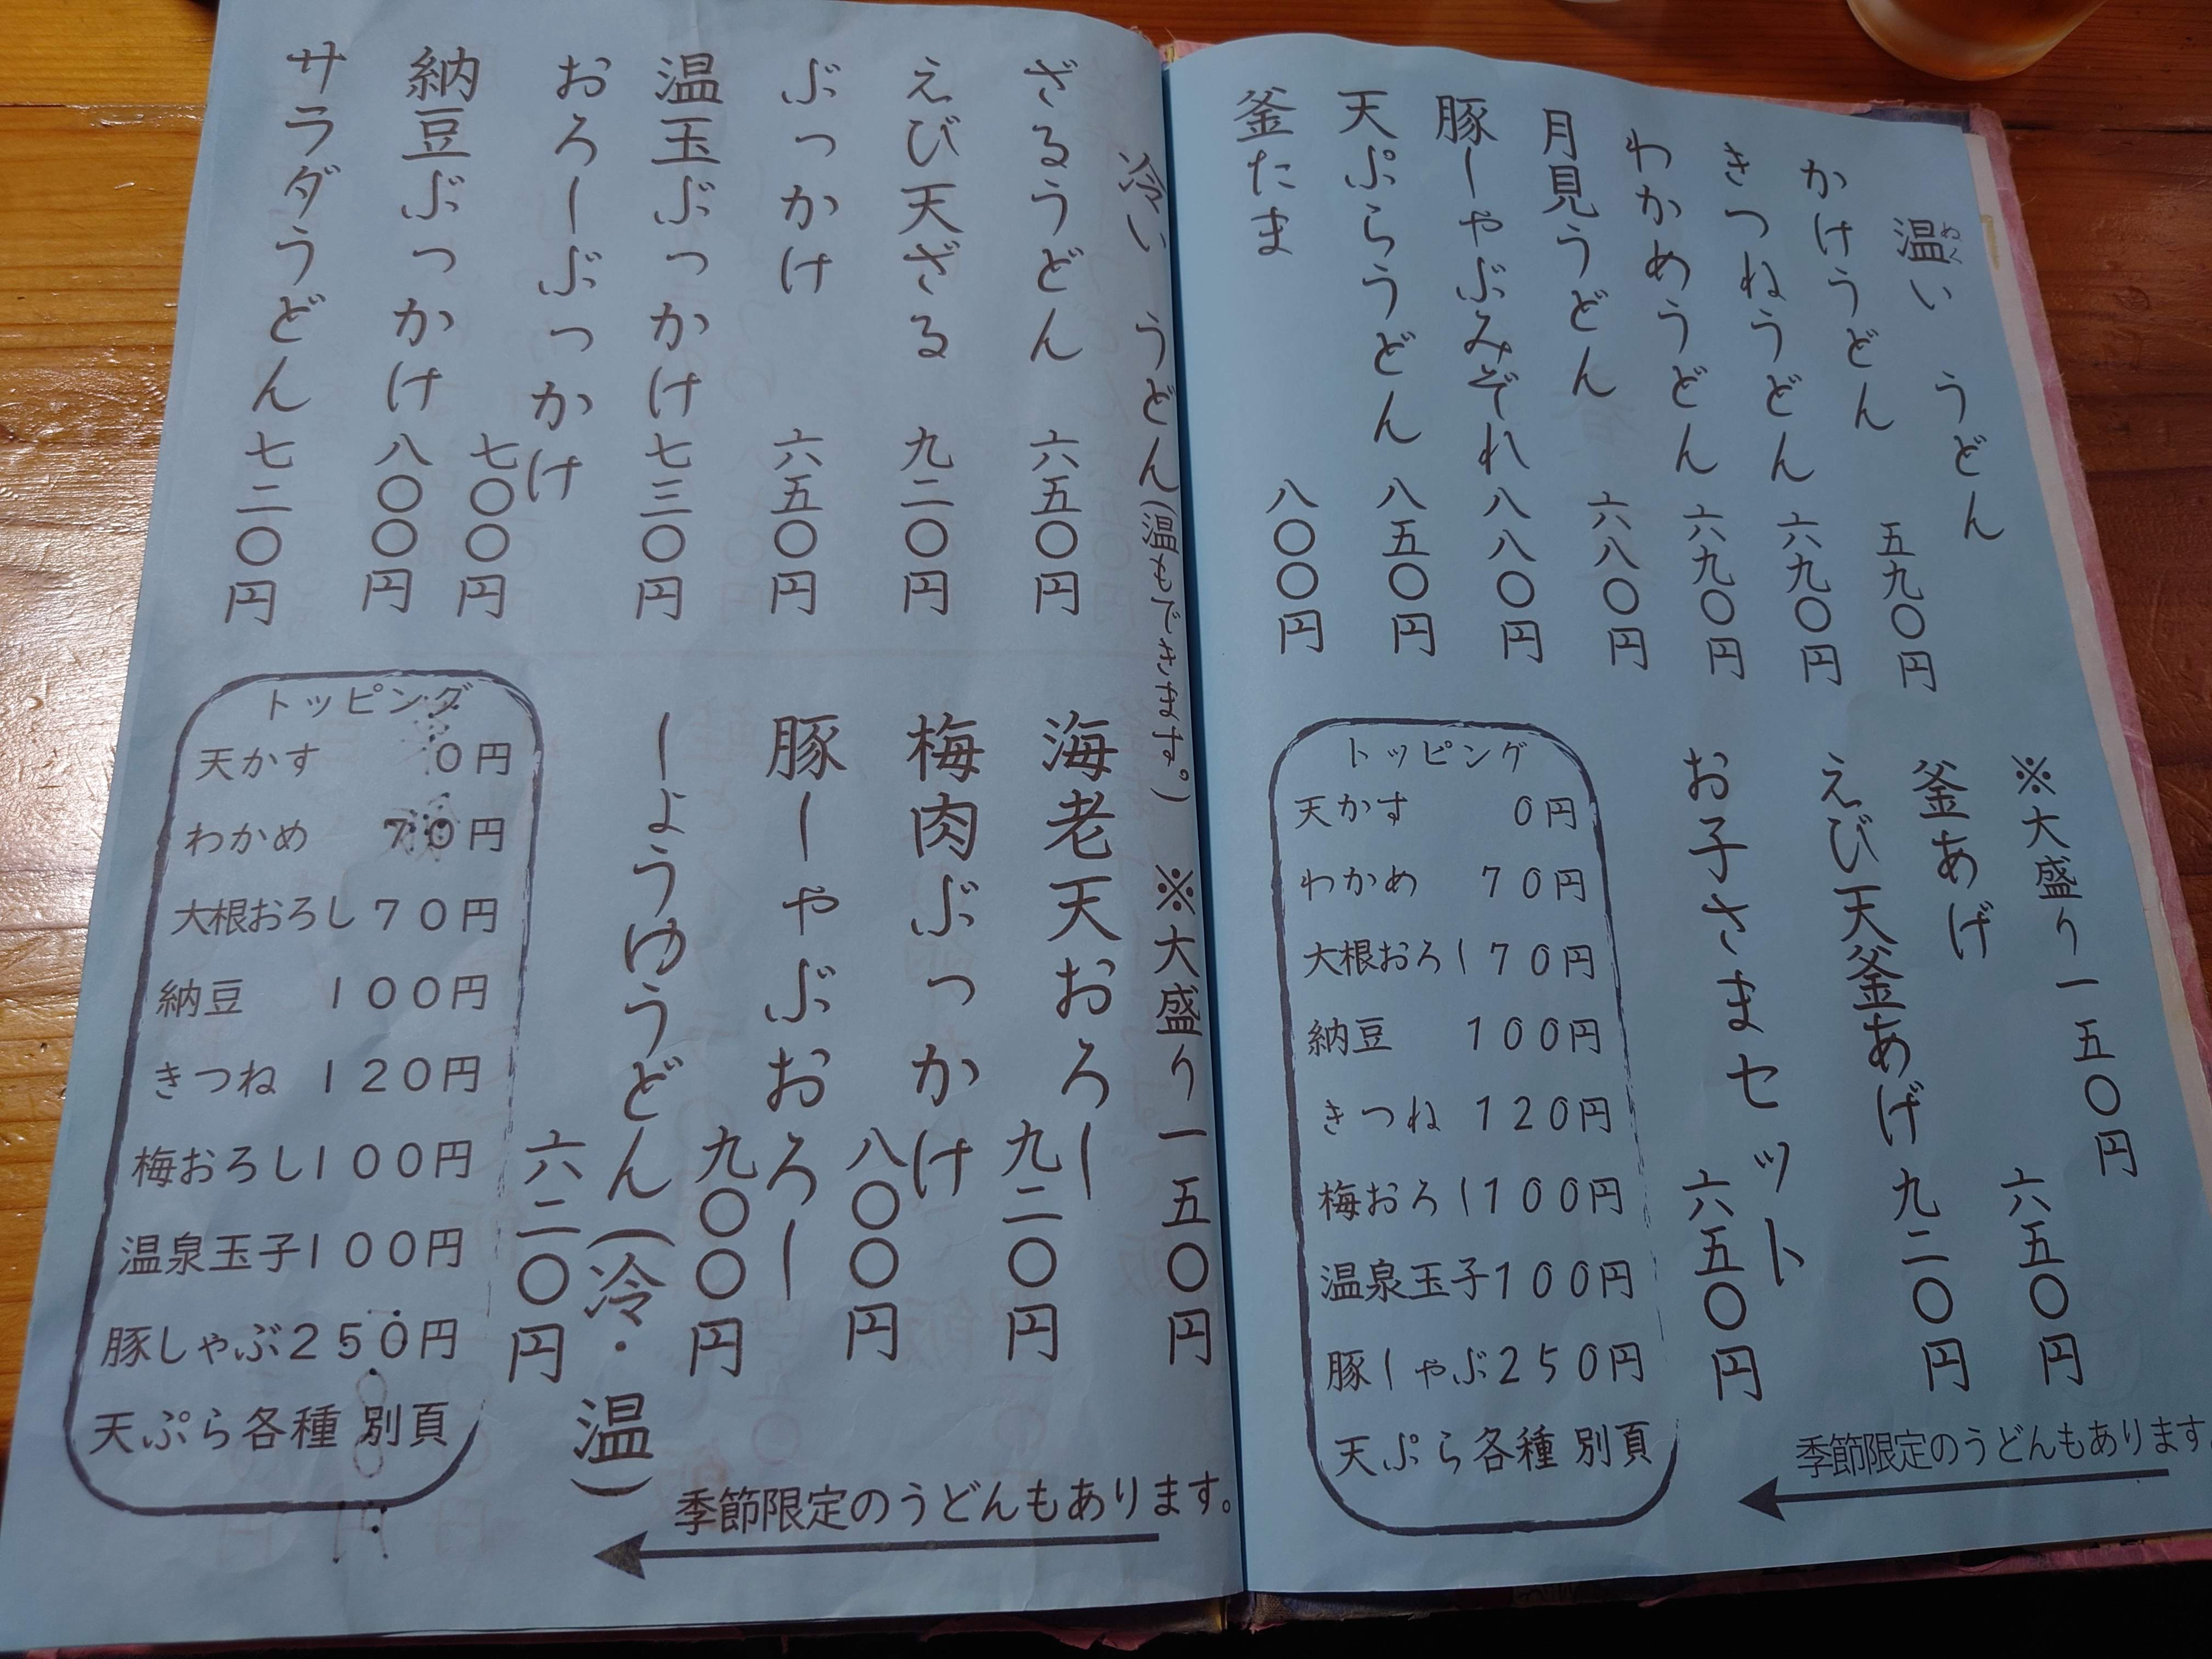 温い うどん
めく
かけうどん 五九〇円
きつねうどん 六九〇円
わかめうどん 六九〇円
月見うどん 六八〇円
豚しゃぶみぞれ 八八〇円
天ぷらうどん 八五〇円
釜たま 八〇〇円
※大盛り 一五〇円
釜あげ 六五〇円
えび天釜あげ 九二〇円
お子さまセット 六五〇円
トッピング
天かす 0円
わかめ 70円
大根おろし 70円
納豆 100円
きつね 120円
梅おろし 100円
温泉玉子 100円
豚しゃぶ 250円
天ぷら各種 別頁
季節限定のうどんもあります。
冷い うどん(温もできます。) ※大盛り 一五〇円
ざるうどん 六五〇円
えび天ざる 九二〇円
ぶっかけ 六五〇円
温玉ぶっかけ 七三〇円
おろしぶっかけ 七〇〇円
納豆ぶっかけ 八〇〇円
サラダうどん 七二〇円
海老天おろし 九二〇円
梅肉ぶっかけ 八〇〇円
豚しゃぶおろし 九〇〇円
しょうゆうどん(冷・温) 六二〇円
トッピング
天かす 0円
わかめ 70円
大根おろし 70円
納豆 100円
きつね 120円
梅おろし 100円
温泉玉子 100円
豚しゃぶ 250円
天ぷら各種 別頁
季節限定のうどんもあります。